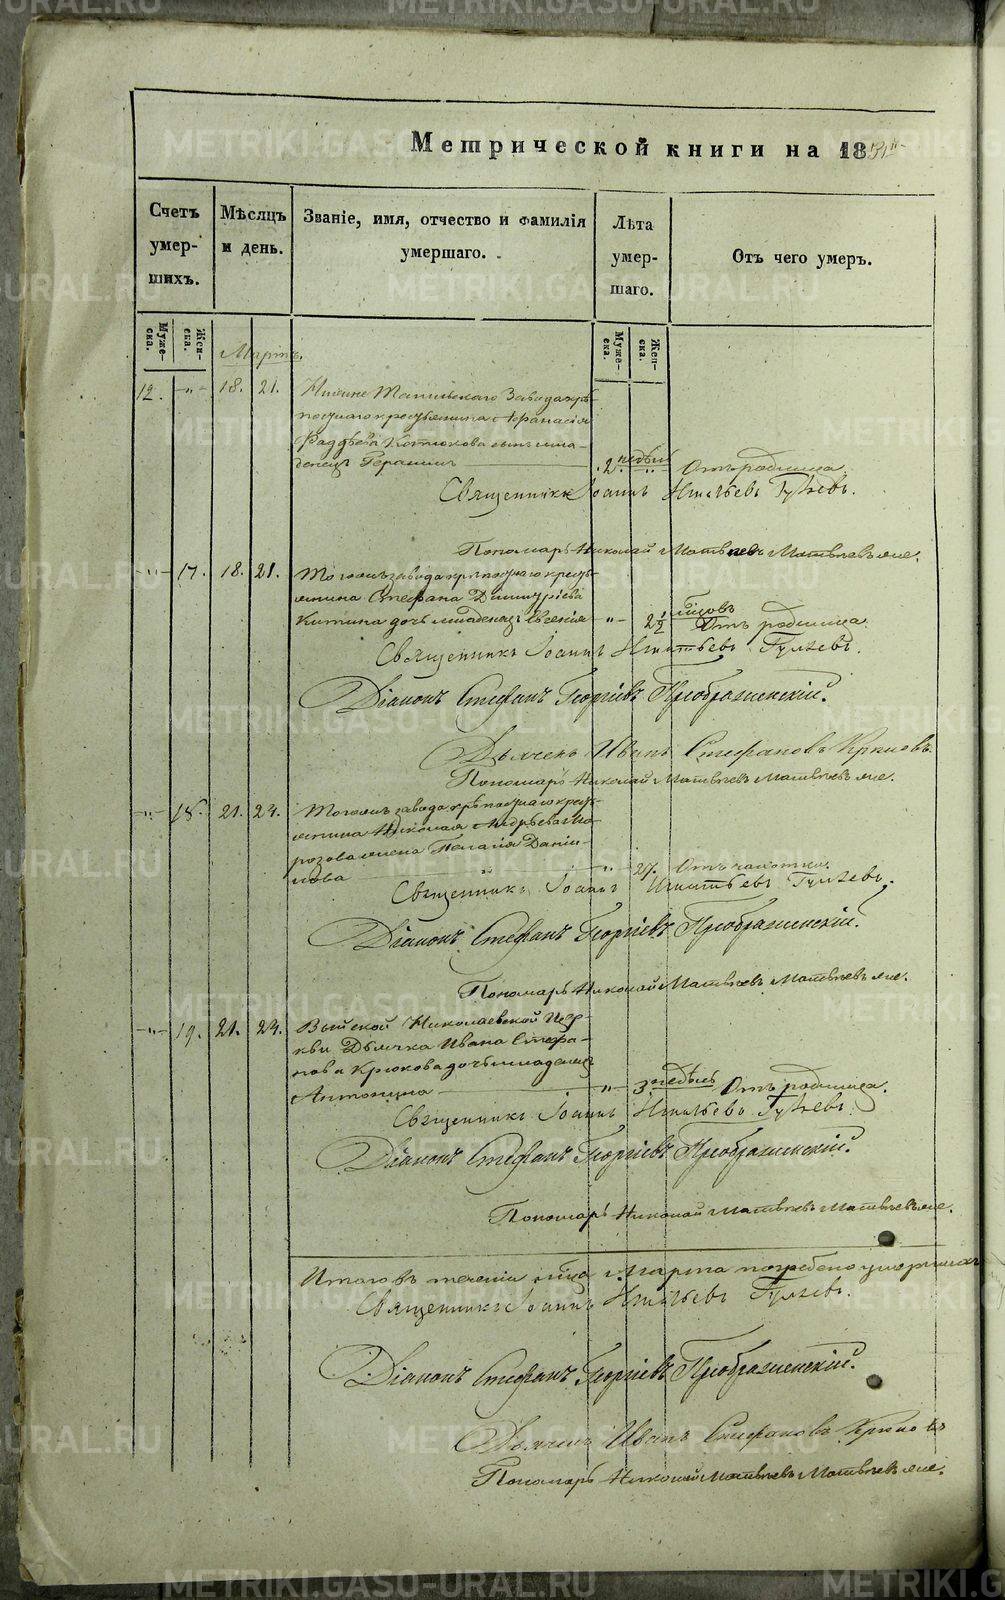 Метрической книги на 185
Счетъ умер- шихъ.
Мѣсяцъ и день.
Званіе, имя, отчество и фамилія умершаго.
Лѣта умер- шаго.
Отъ чего умеръ.
Муже- ска.
Жен- ска.
Муже- ска.
Жен- ска.
Мартъ.
12. -"- 18. 21. Нижне Тагильскаго Завода крѣ-
постнаго крестьянина Афанасія
Фаддѣева Котюкова сынъ мла-
денецъ Герасимъ 2 недѣли -"- Отъ родимца.
Священникъ Іоаннъ Игнатьевъ Гуляевъ.
Пономарь Николай Матвѣевъ Матвѣевъ же.
-"- 17. 18. 21. Тогоже завода крѣпостнаго кресть-
янина Стефана Димитріева
Китина дочь младенецъ Евгенія -"- 2½ мѣсяцовъ Отъ родимца.
Священникъ Іоаннъ Игнатьевъ Гуляевъ.
Діаконъ Стефанъ Георгіевъ Преображенскій.
Дьячекъ Иванъ Стефановъ Крюковъ.
Пономарь Николай Матвѣевъ Матвѣевъ же.
-"- 18. 21. 24. Тогоже завода крѣпостнаго кресть-
янина Николая Андрѣева Мо-
розова жена Пелагія Дани-
лова -"- 27. Отъ чахотки.
Священникъ Іоаннъ Игнатьевъ Гуляевъ.
Діаконъ Стефанъ Георгіевъ Преображенскій.
Пономарь Николай Матвѣевъ Матвѣевъ же.
-"- 19. 21. 24. Выйской Николаевской Цер-
кви Дьячка Ивана Стефа-
нова Крюкова дочь младенецъ
Антонина -"- 3 недѣль Отъ родимца.
Священникъ Іоаннъ Игнатьевъ Гуляевъ.
Діаконъ Стефанъ Георгіевъ Преображенскій.
Пономарь Николай Матвѣевъ Матвѣевъ же.
Итого въ теченіи мѣсца Марта погребено умершихъ
Священникъ Іоаннъ Игнатьевъ Гуляевъ.
Діаконъ Стефанъ Георгіевъ Преображенскій.
Дьячекъ Иванъ Стефановъ Крюковъ
Пономарь Николай Матвѣевъ Матвѣевъ же.
METRIKI.GASO-URAL.RU